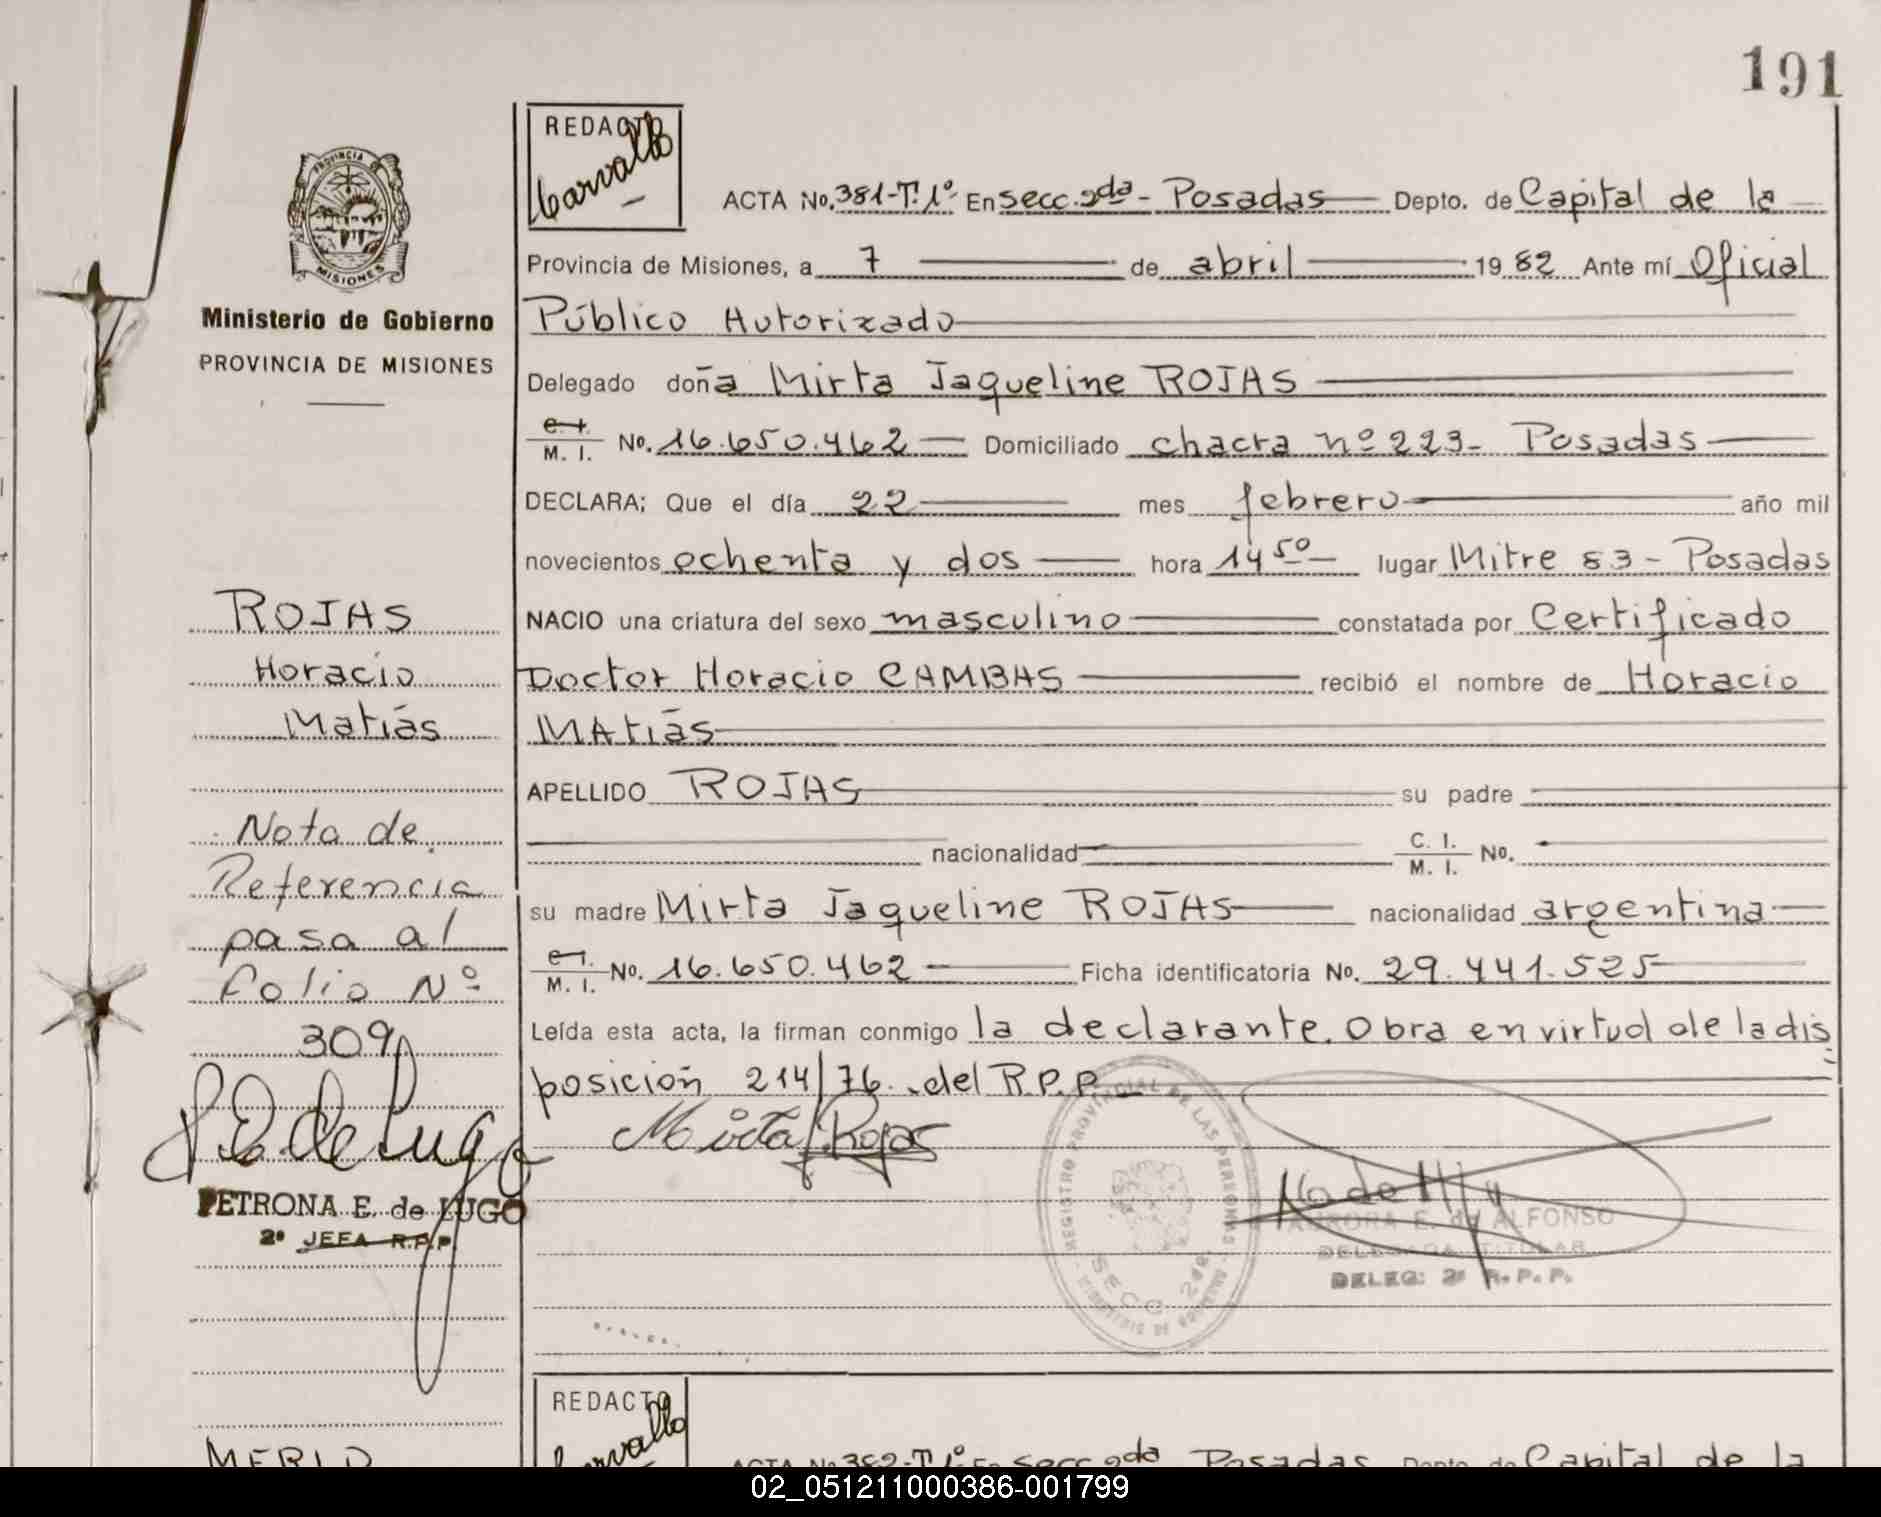 191
REDACTO
Carvallo
PROVINCIA DE
MISIONES
Ministerio de Gobierno
PROVINCIA DE MISIONES
ACTA No. 381-T. 1º En Secc. 2da - Posadas Depto. de Capital de la
Provincia de Misiones, a 7 de abril 19 82 Ante mí Oficial
Público Autorizado
Delegado doña Mirta Jaqueline ROJAS
C. I. / M. I. No. 16.650.462 Domiciliado chacra nº 223- Posadas
DECLARA; Que el día 22 mes febrero año mil
novecientos ochenta y dos hora 14 50 lugar Mitre 83 - Posadas
NACIO una criatura del sexo masculino constatada por Certificado
Doctor Horacio CAMBAS recibió el nombre de Horacio
MAtías
APELLIDO ROJAS su padre
nacionalidad C. I. / M. I. No.
su madre Mirta Jaqueline ROJAS nacionalidad argentina
C. I. / M. I. No. 16.650.462 Ficha identificatoria No. 29.441.525
Leída esta acta, la firman conmigo la declarante. Obra en virtud de la dis
posición 214/76. del R.P.P.
Mirta J. Rojas
REGISTRO PROVINCIAL DE LAS PERSONAS
SECC 2da
AURORA E. de ALFONSO
DELEGADA TITULAR
DELEG: 2ª R. P. P.
ROJAS
Horacio
Matías
Nota de
Referencia
pasa al
folio Nº
309
P. E. de Lugo
PETRONA E. de LUGO
2º JEFA R.P.P.
REDACTO
Carvallo
MERLO
ACTA No. 382-T. 1º En Secc 2da Posadas Depto. de Capital de la
02_051211000386-001799